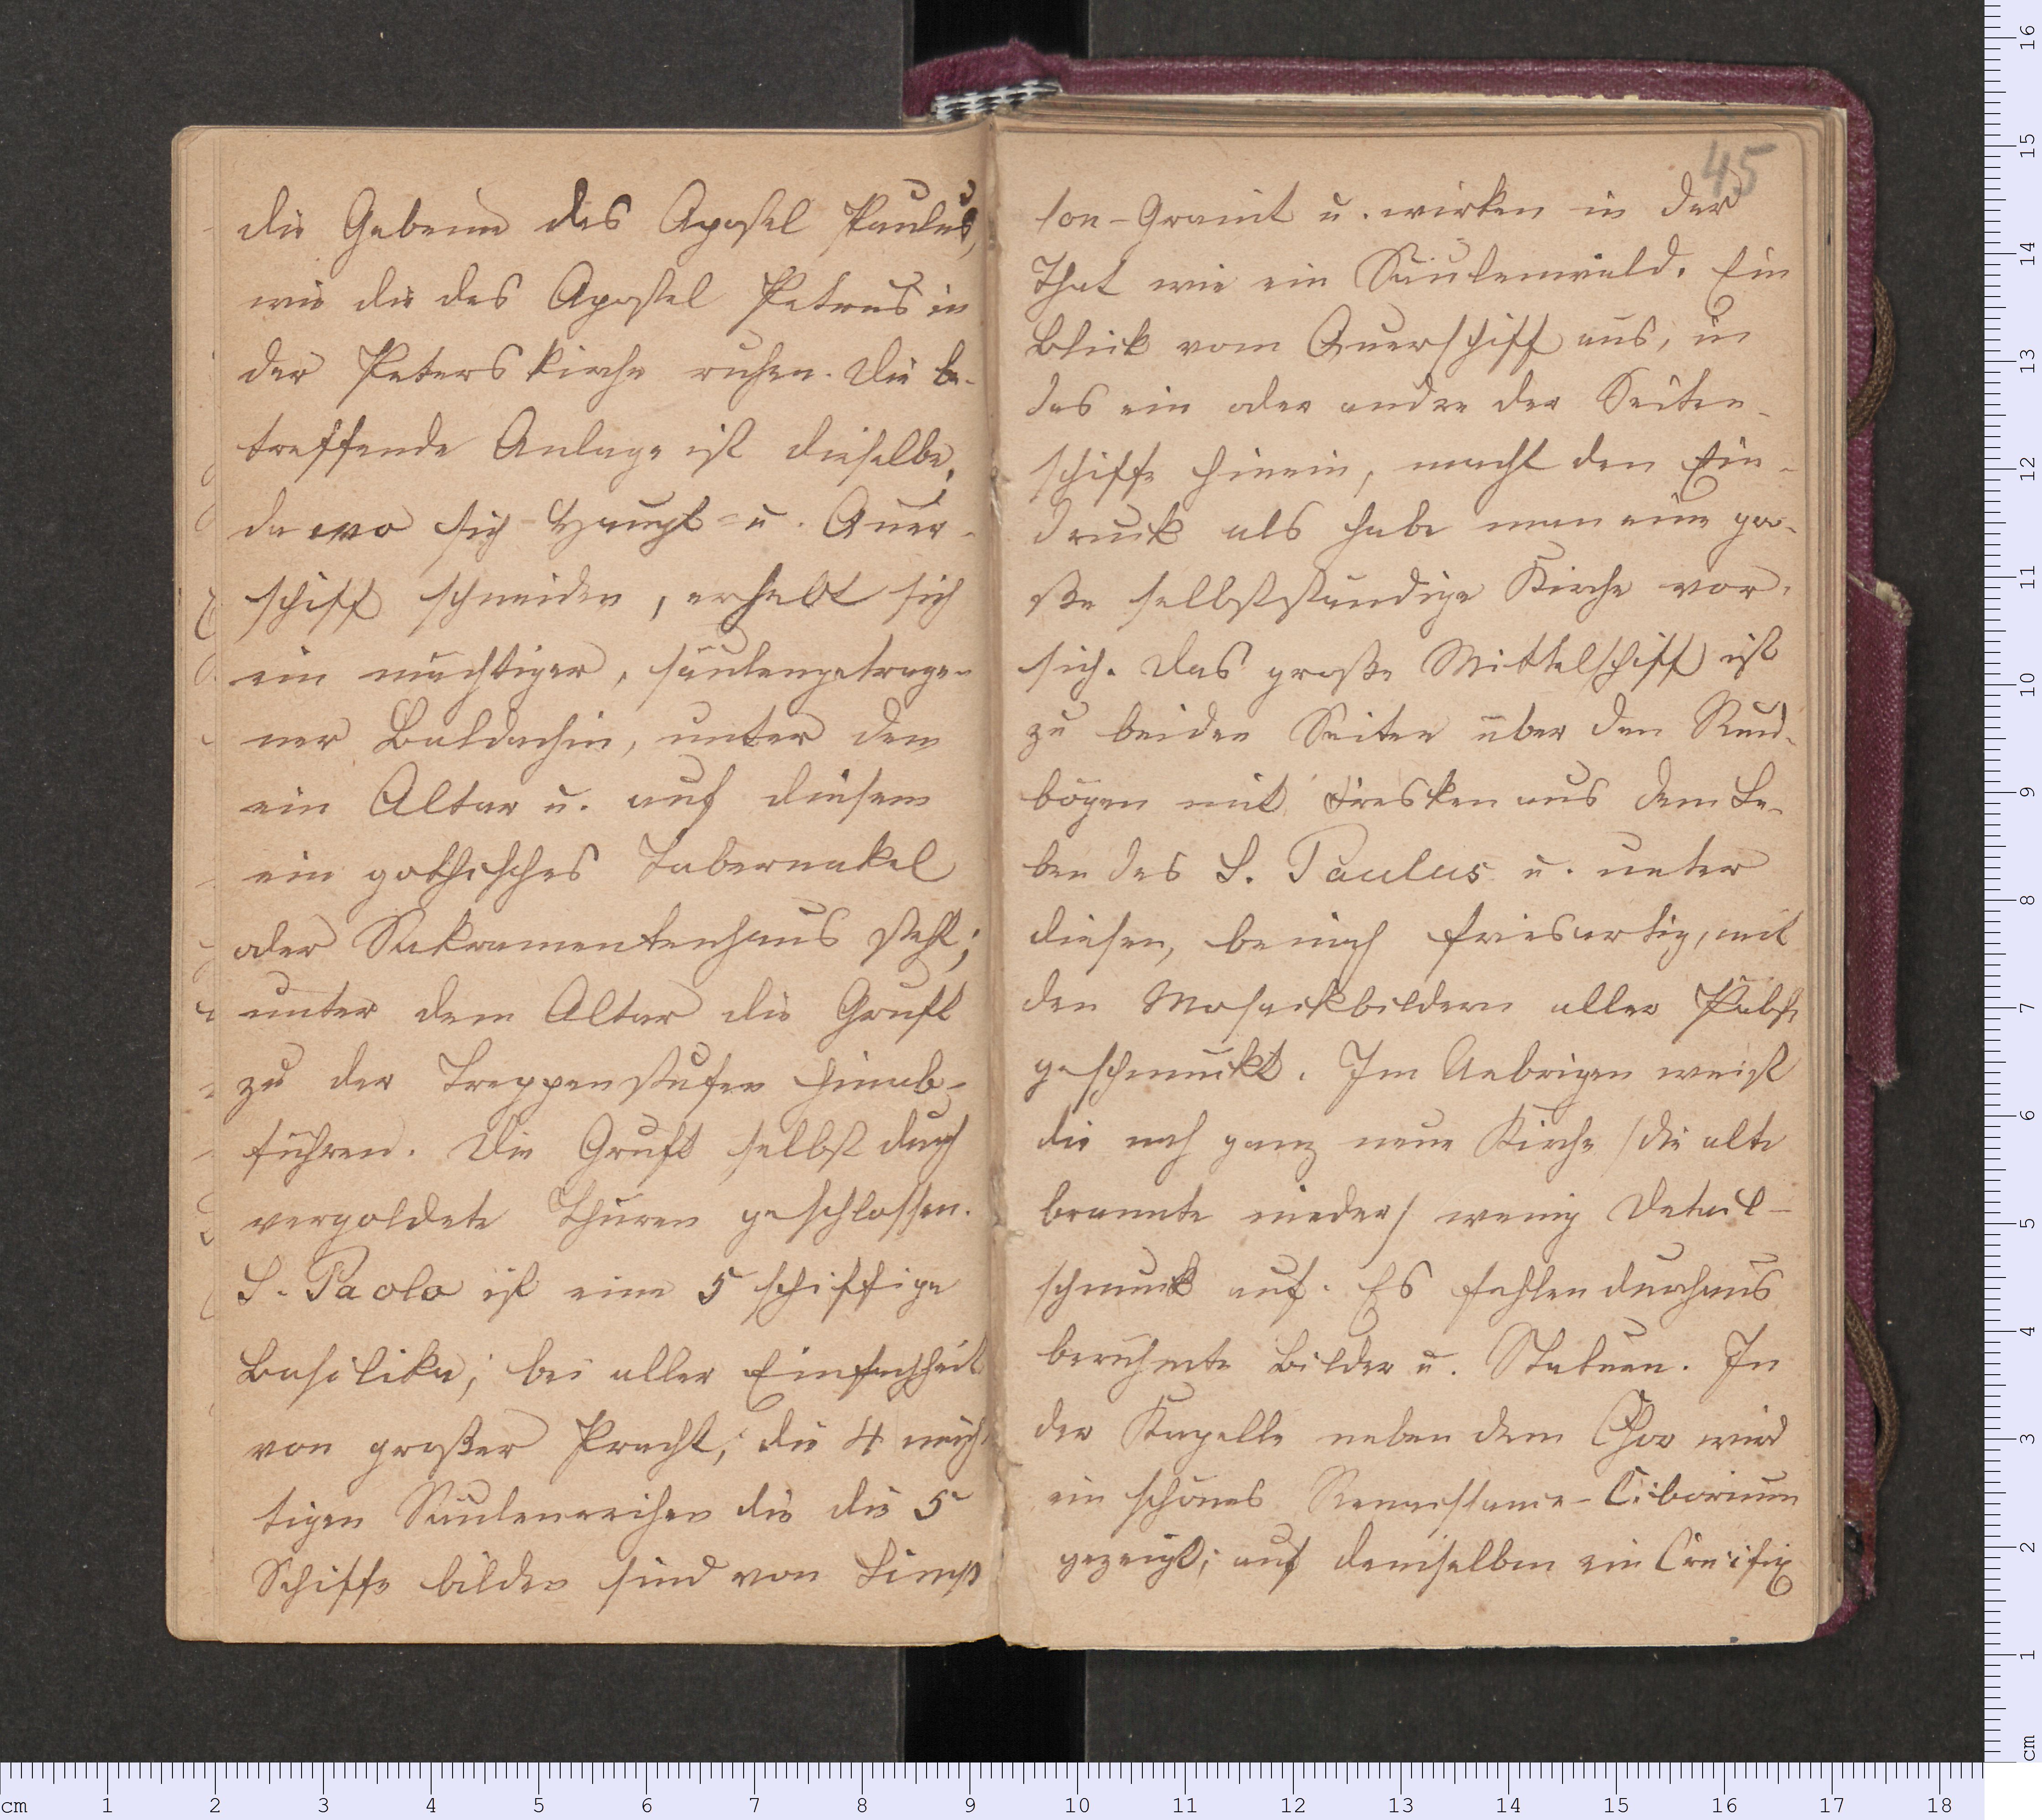 die Gebeine des Apostel Paulus,
wie die des Apostel Petrus in
der Peterskirche ruhen. Die be-
treffende Anlage ist dieselbe;
da wo sich Haupt- u. Quer-
schiff schneiden, erhebt sich
ein mächtiger, säulengetrage-
ner Baldachin, unter dem
ein Altar u. auf diesem
ein gothisches Tabernakel
oder Sakramentenhaus steht;
unter dem Altar die Gruft
zu der Treppenstufen hinab-
führen. Die Gruft selbst durch
vergoldete Thüren geschlossen.
S. Paolo ist eine 5 schiffige
Basilika; bei aller Einfachheit
von großer Pracht; die 4 mäch-
tigen Säulenreihen die die 5
Schiffe bilden sind von Simp
45
lon-Granit u. wirken in der
That wie ein Säulenwald. Ein
Blick vom Querschiff aus, in
das ein oder andre der Seiten-
schiffe hinein, macht den Ein-
druck als habe man eine gro-
ße selbstständige Kirche vor
sich. Das große Mittelschiff ist
zu beiden Seiten über den Rund-
bögen mit Fresken aus dem Le-
ben des S. Paulus u. unter
diesen, beinah friesartig, mit
den Mosaikbildern aller Päbste
geschmückt. Im Uebrigen weist
die noch ganz neue Kirche (die alte
brannte nieder) wenig Detail-
schmuck auf. Es fehlen durchaus
berühmte Bilder u. Statuen. In
der Kapelle neben dem Chor wird
ein schönes Renaissance-Ciborium
gezeigt; auf demselben ein Crucifix